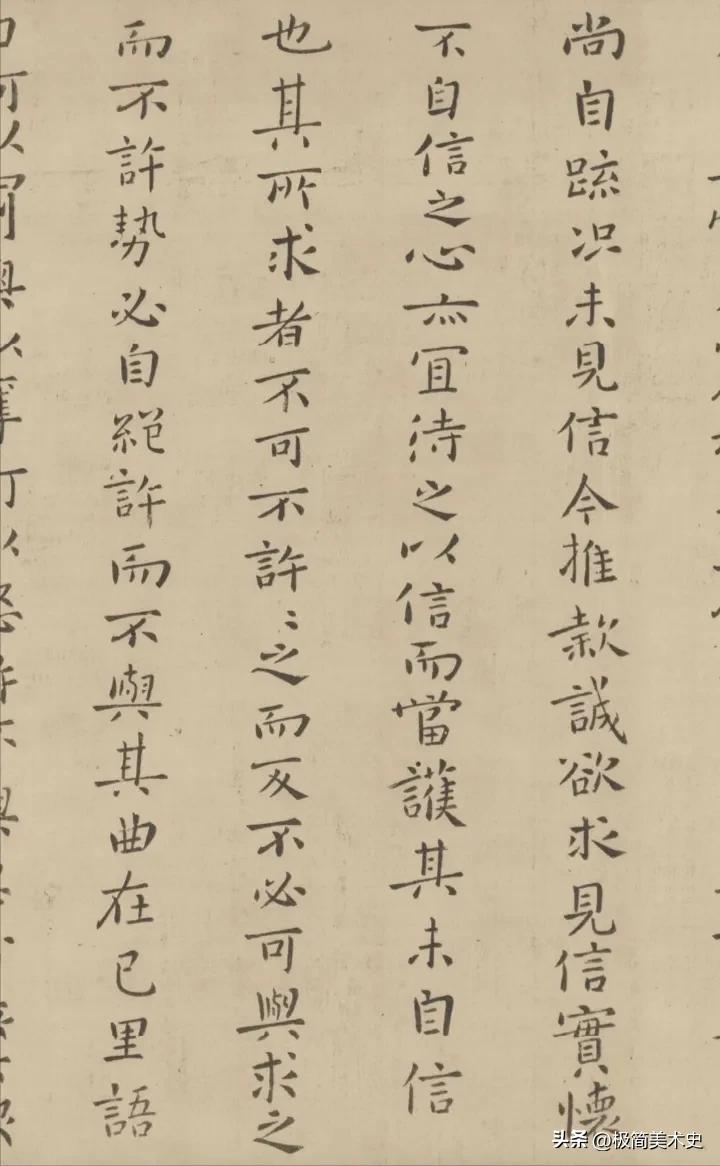 尚自疏况未見信今推款誠欲求見信實懷
不自信之心亦宜待之以信而當護其未自信
也其所求者不可不許〻之而反不必可與求之
而不許勢必自絕許而不與其曲在己里語
头条 @极简美术史